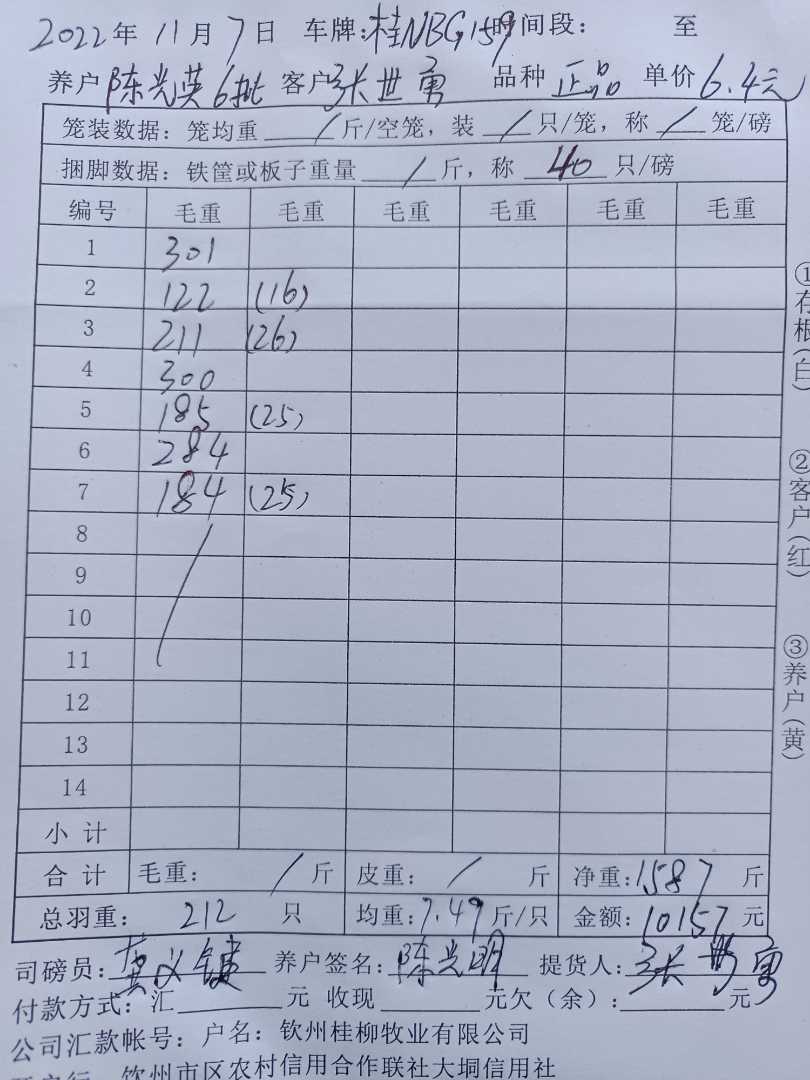 2022年 11月 7日 车牌:桂NBG159时间段: 至
养户陈光英6批 客户张世寓 品种 正品 单价6.4元
笼装数据: 笼均重 / 斤/空笼, 装 / 只/笼, 称 / 笼/磅
捆脚数据: 铁筐或板子重量 / 斤, 称 40 只/磅
编号 毛重 毛重 毛重 毛重 毛重 毛重
1 301
2 122 (16)
3 211 (26)
4 300
5 185 (25)
6 284
7 184 (25)
8
9
10
11
12
13
14
小计
合计 毛重: / 斤 皮重: / 斤 净重:1587 斤
总羽重: 212 只 均重:7.49斤/只 金额:10157元
司磅员: 养户签名:陈光明 提货人:张世寓
付款方式: 汇 元 收现 元欠(余): 元
公司汇款帐号: 户名: 钦州桂柳牧业有限公司
钦州市区农村信用合作联社大垌信用社
①存根(白)
②客户(红)
③养户(黄)